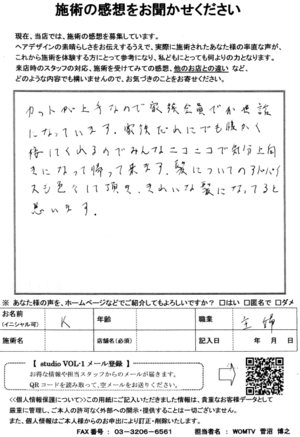 施術の感想をお聞かせください
現在、当店では、施術の感想を募集しています。
ヘアデザインの素晴らしさをお伝えするうえで、実際に施術されたあなた様の率直な声が、
これから施術を体験する方にとって参考になり、私どもにとっても何よりの力となります。
来店時のスタッフの対応、施術を受けてみての感想、他のお店との違い など、
どのような内容でも構いませんので、お気づきのことをお寄せください。
カットが上手なので家族全員でお世話
になっています。家族だれにでも暖かく
接してくれるのでみんなニコニコで気分上向
きになって帰って来ます。髪についてのアドバイ
スも色々して頂き、きれいな髪になってると
思います。
※ あなた様の声を、ホームページなどでご紹介してもよろしいですか？ □はい □匿名で □ダメ
お名前 K 年齢 職業 主婦
(イニシャル可)
施術名 店舗名(必須) 記入日 年 月 日
【 studio VOL-1 メール登録 】
お得な情報や担当スタッフからのメールが届きます。
QRコードを読み取って、空メールをお送りください。
<<個人情報保護について>>この用紙にご記入いただきました情報は、貴重なお客様データとして
厳重に管理し、ご本人の許可なく外部への開示・提供することは一切ございません。
また、個人情報はご本人様からのお申出により訂正・削除いたします。
FAX番号 ： 03－3206－6561 担当者名 ： WOMTV 菅沼 博之